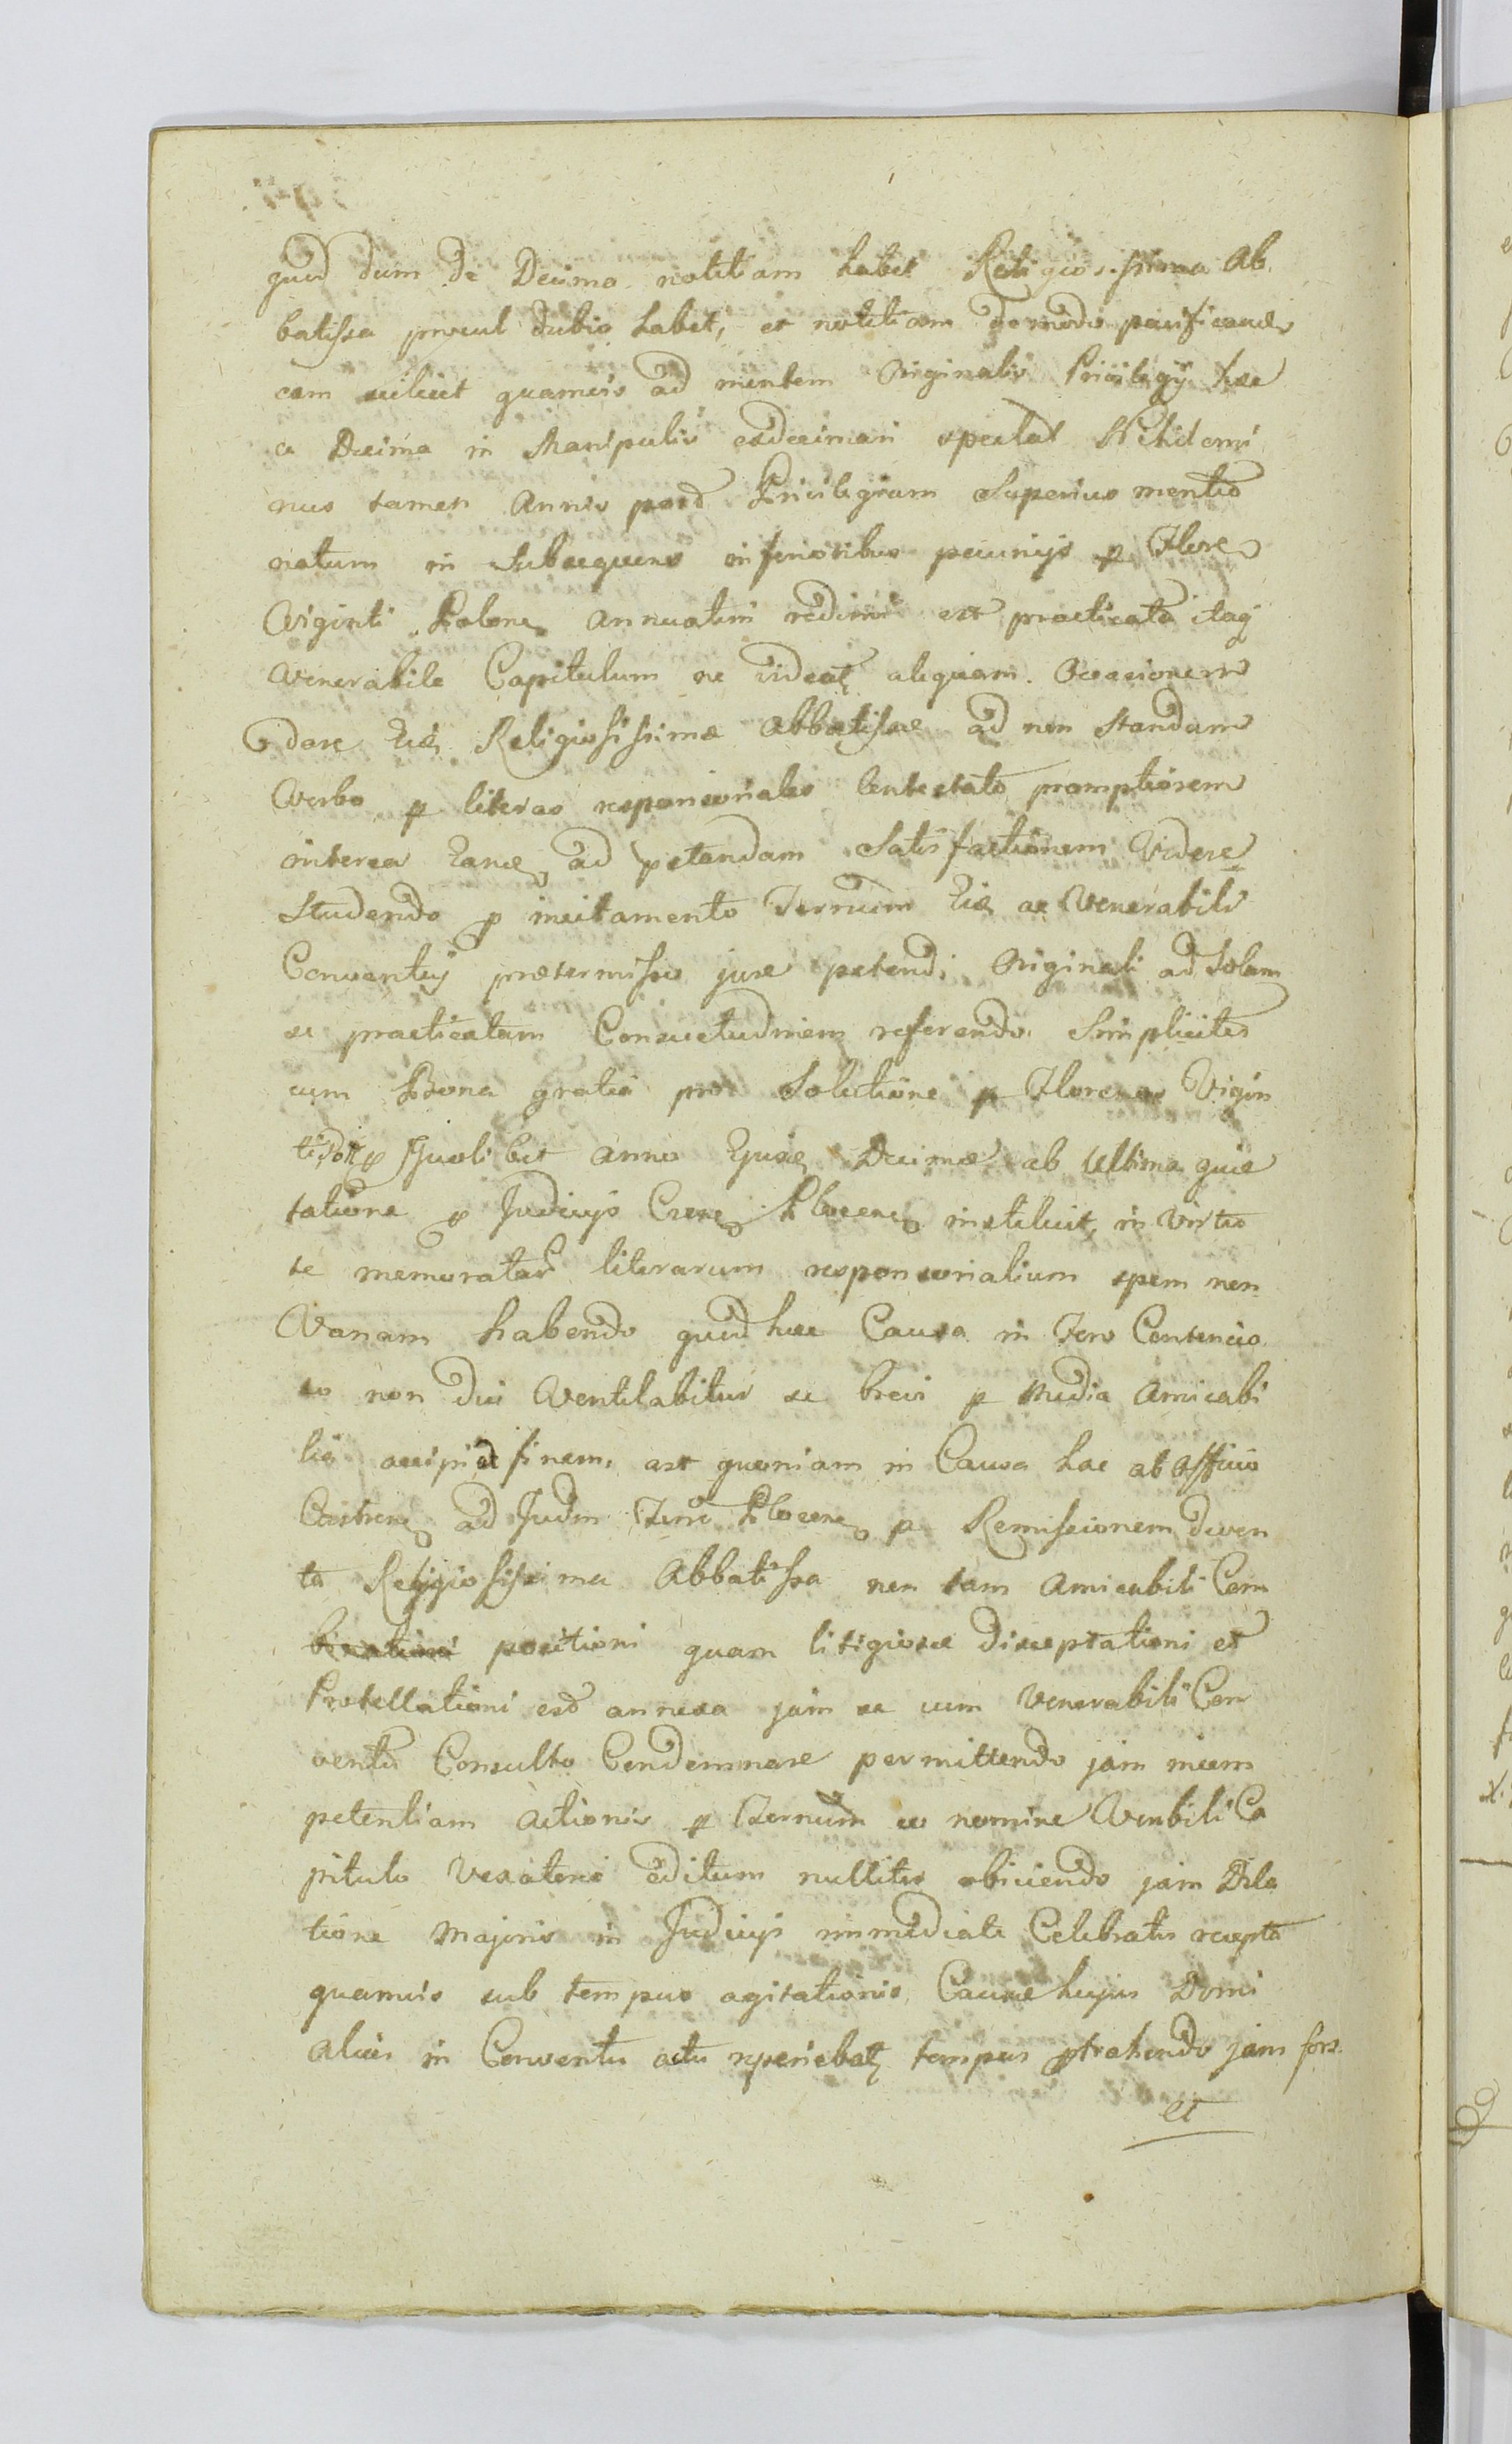 quod dum de Decima notitiam habet Religiosissima Ab
batissa procul dubio habet, et notitiam de modo pacificandi
eam scilicet quamvis ad mentem Originalis Privilegij hae
c Decima in Manipulis exdecimari spectat Nihilomi
nus tamen Annis post Privilegium Superius mentio
natum in Subsequens inferioribus pecunijs p Flore
Viginti Polone annuatim redimi est practicata itaq
Venerabile Capitulum ne videat aliquam Occasionem
dare Eid Religiosissimae Abbatissae ad non standum
Verbo p literas responsoriales contestato promptiorem
interea ad petendam Satisfactionem Videre
Studendo p incitamento Termini ac Venerabili
Conventuj praetermisso jure petendi Originali ad Solam
se practicatam Consuetudinem referendo Simpliciter
cum Bona gratia pro Solutione p Florenos Vigin
ti p Quolibet anno Ejusd Decimae ab Ultima quie
tatione p Judicijs Castren Plocen instituit, in Virtu
te memoratar literarum responsorialium spem non
Vanam habendo quod haec Causa in Foro Contencio
so non diu Ventilabitur se brevi p media Amicabi
lia accipiet finem, ast quoniam in Causa hac ab Officio
Castren ad Judm Plocen p Remissionem deven
ta Religiosissima Abbatissa non tam Amicabili Com
positioni quam litigiosae disceptationi et
Protellationi est annexa jam se cum Venerabili Con
ventu Consulto Condemnare permittendo jam incom
petentiam Actionis p Ternum eo nomine Venbili Ca
pitulo Vexatorie editum nulliter obiiciendo jam Dila
tione Majoris in Judicijs immediate Celebratis recepta
quamvis sub tempus agitationis Causae hujus Domi
alias in Conventu actu reperiebat tempus ptrahendo jam fors
et